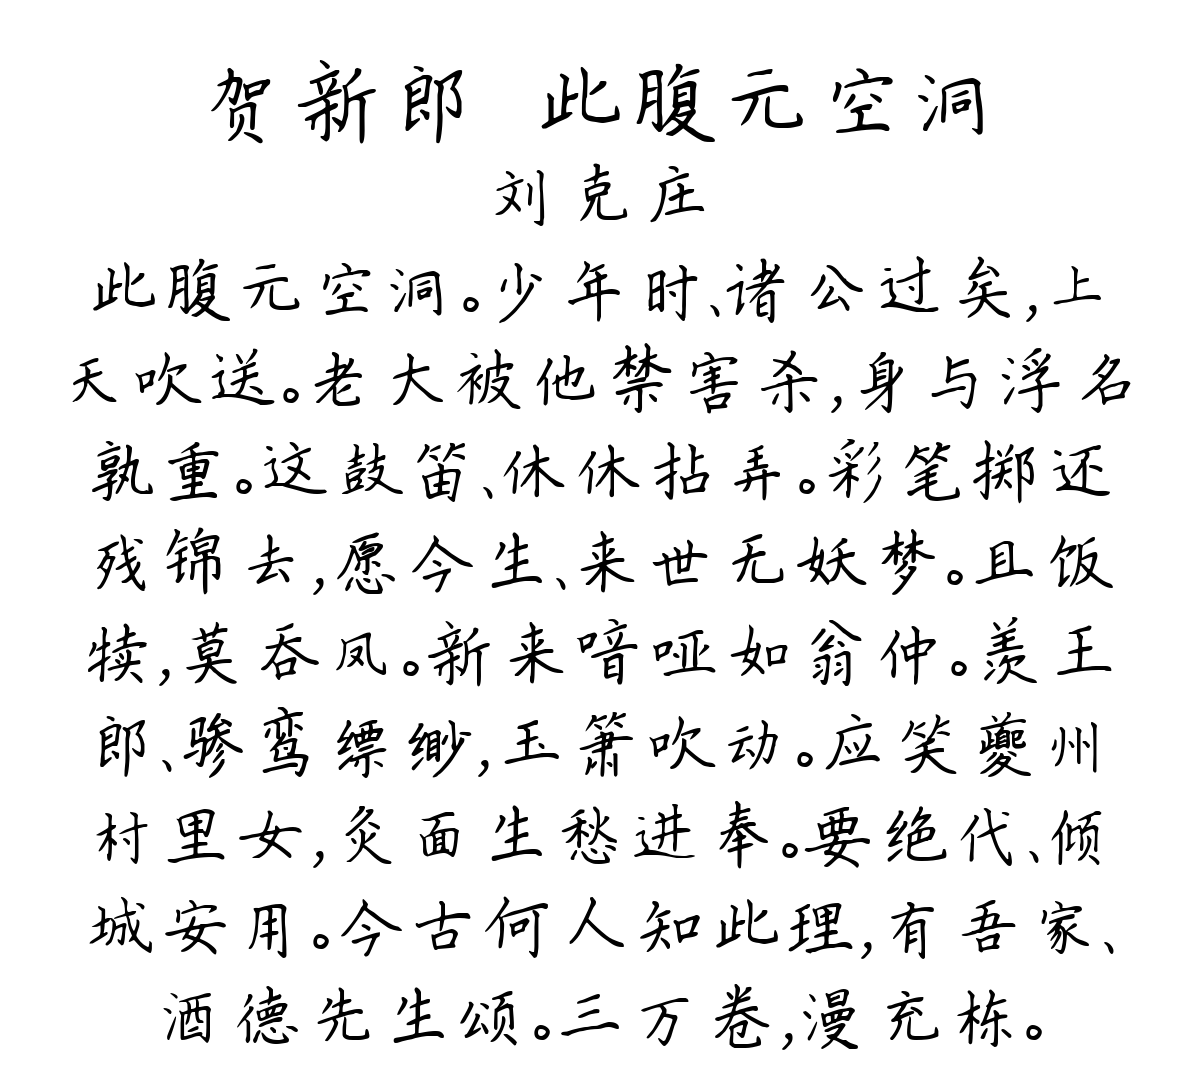 贺新郎 此腹元空洞
刘克庄
此腹元空洞。少年时、诸公过矣,上
天吹送。老大被他禁害杀,身与浮名
孰重。这鼓笛、休休拈弄。彩笔掷还
残锦去,愿今生、来世无妖梦。且饭
犊,莫吞凤。新来喑哑如翁仲。羡王
郎、骖鸾缥缈,玉箫吹动。应笑夔州
村里女,灸面生愁进奉。要绝代、倾
城安用。今古何人知此理,有吾家、
酒德先生颂。三万卷,漫充栋。